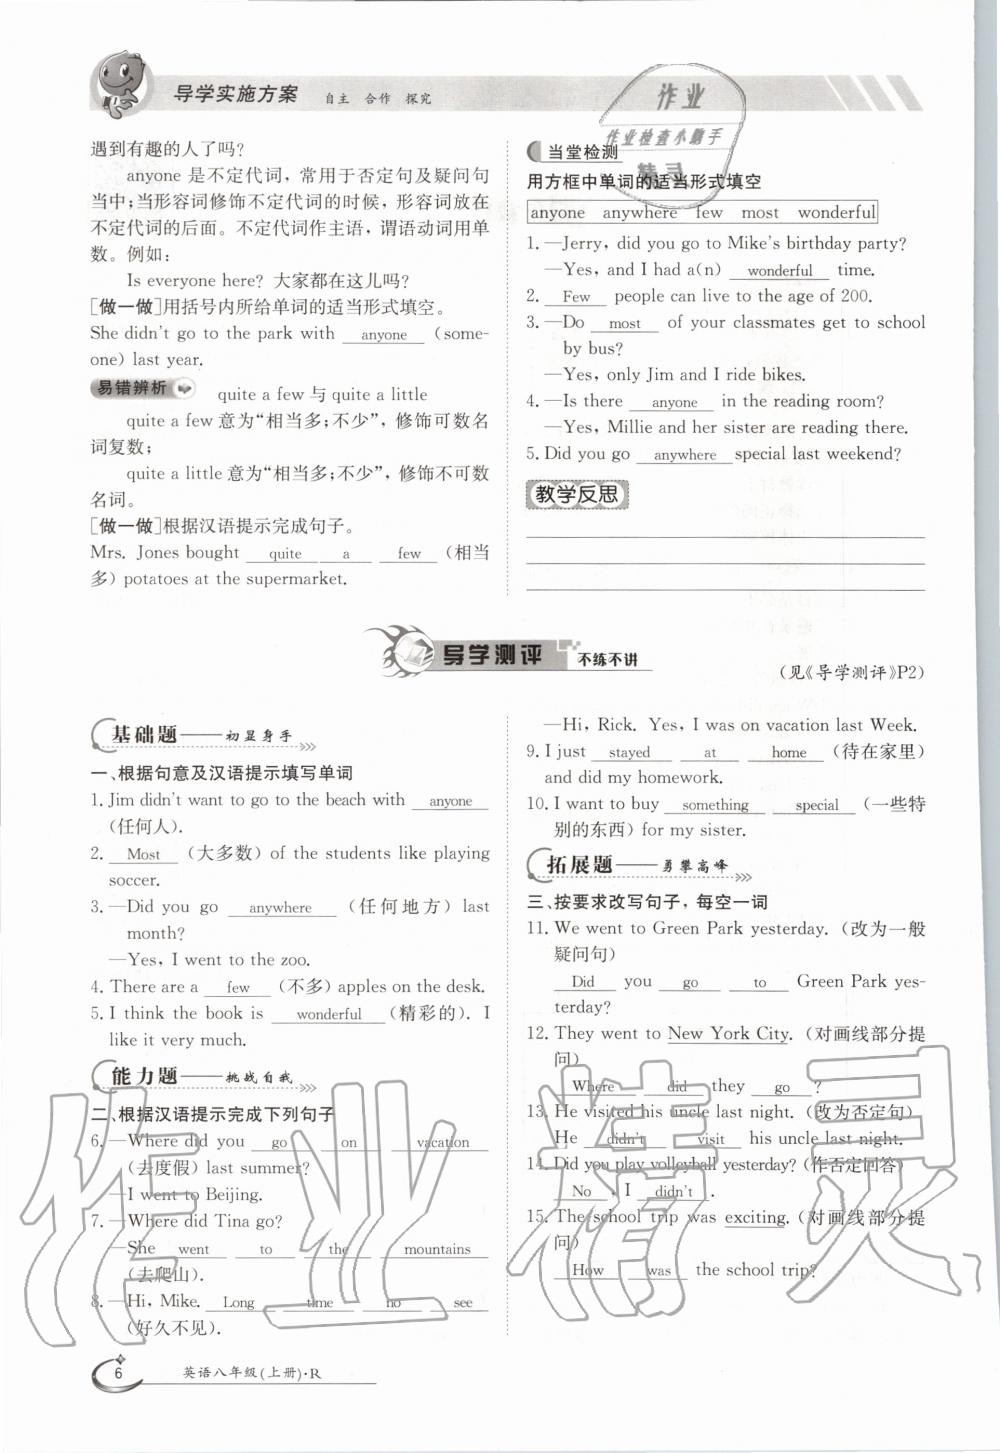 导学实施方案 自主 合作 探究
遇到有趣的人了吗?
anyone 是不定代词，常用于否定句及疑问句
当中;当形容词修饰不定代词的时候，形容词放在
不定代词的后面。不定代词作主语，谓语动词用单
数。例如:
Is everyone here? 大家都在这儿吗?
[做一做]用括号内所给单词的适当形式填空。
She didn't go to the park with anyone (some-
one) last year.
易错辨析 quite a few 与 quite a little
quite a few 意为“相当多;不少”，修饰可数名
词复数;
quite a little 意为“相当多;不少”，修饰不可数
名词。
[做一做]根据汉语提示完成句子。
Mrs. Jones bought quite a few (相当
多) potatoes at the supermarket.
作业
作业检查小助手
精灵
当堂检测
用方框中单词的适当形式填空
anyone anywhere few most wonderful
1. —Jerry, did you go to Mike's birthday party?
—Yes, and I had a(n) wonderful time.
2. Few people can live to the age of 200.
3. —Do most of your classmates get to school
by bus?
—Yes, only Jim and I ride bikes.
4. —Is there anyone in the reading room?
—Yes, Millie and her sister are reading there.
5. Did you go anywhere special last weekend?
教学反思
导学测评 不练不讲
(见《导学测评》P2)
基础题——初显身手
一、根据句意及汉语提示填写单词
1. Jim didn't want to go to the beach with anyone
(任何人).
2. Most (大多数) of the students like playing
soccer.
3. —Did you go anywhere (任何地方) last
month?
—Yes, I went to the zoo.
4. There are a few (不多) apples on the desk.
5. I think the book is wonderful (精彩的). I
like it very much.
能力题——挑战自我
二、根据汉语提示完成下列句子
6. —Where did you go on vacation
(去度假) last summer?
—I went to Beijing.
7. —Where did Tina go?
—She went to the mountains
(去爬山).
8. —Hi, Mike. Long time no see
(好久不见).
—Hi, Rick. Yes, I was on vacation last Week.
9. I just stayed at home (待在家里)
and did my homework.
10. I want to buy something special (一些特
别的东西) for my sister.
拓展题——勇攀高峰
三、按要求改写句子，每空一词
11. We went to Green Park yesterday. (改为一般
疑问句)
Did you go to Green Park yes-
terday?
12. They went to New York City. (对画线部分提
问)
Where did they go ?
13. He visited his uncle last night. (改为否定句)
He didn't visit his uncle last night.
14. Did you play volleyball yesterday? (作否定回答)
No , I didn't .
15. The school trip was exciting. (对画线部分提
问)
How was the school trip?
作业精灵
6 英语八年级(上册)·R